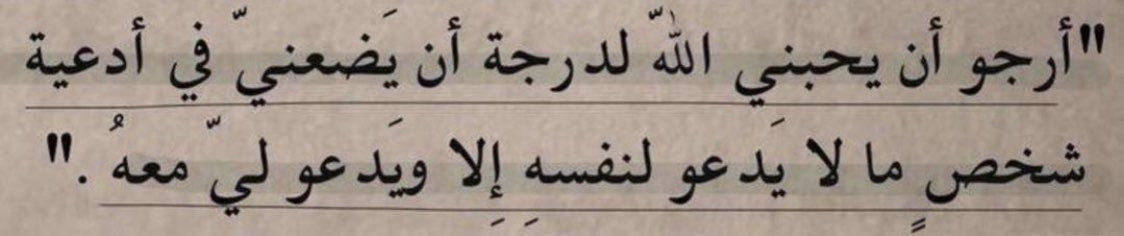 "أرجو أن يحبني اللّه لدرجة أن يَضعنيّ في أدعية
شخصٍ ما لا يَدعو لنفسهِ إِلا ويَدعو ليّ معهُ ."